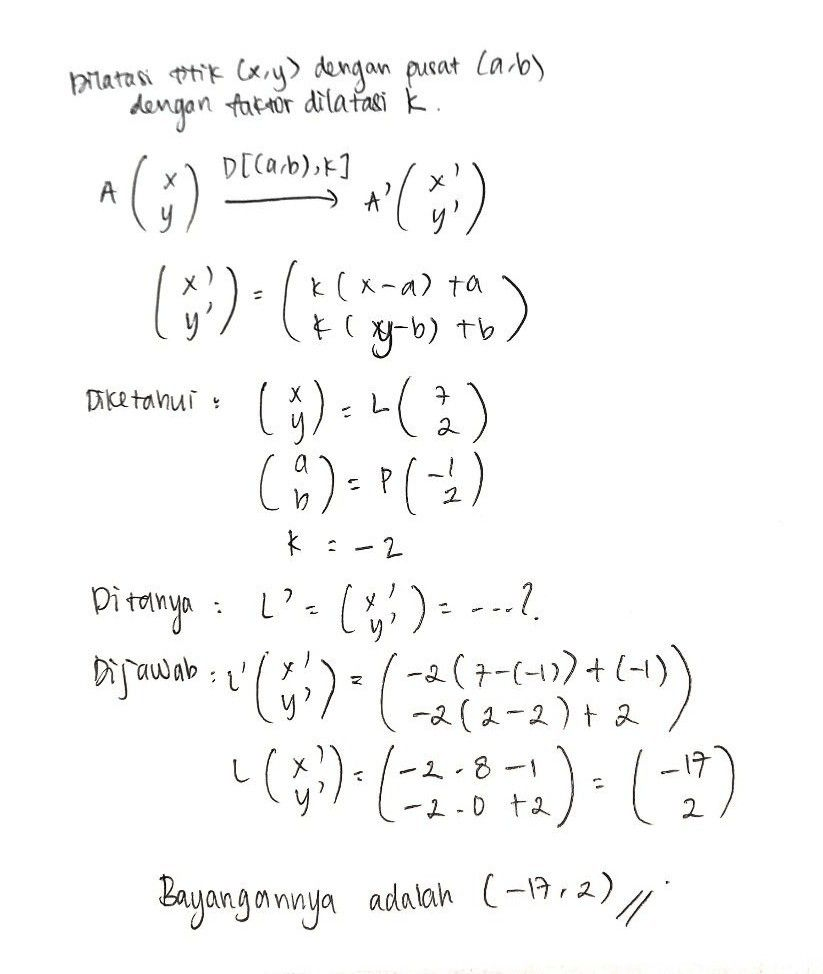 Dilatasi titik (x,y) dengan pusat (a,b)
dengan faktor dilatasi k.
A (x y) D[(a,b),k] → A' (x' y')
(x' y') = (k(x-a)+a k(y-b)+b)
Diketahui : (x y) = L (7 2)
(a b) = P (-1 2)
k = -2
Ditanya : L' = (x' y') = ....?
Dijawab : L' (x' y') = (-2(7-(-1))+(-1) -2(2-2)+2)
L (x' y') = (-2 . 8 -1 -2 . 0 +2) = (-17 2)
Bayangannya adalah (-17,2) //.